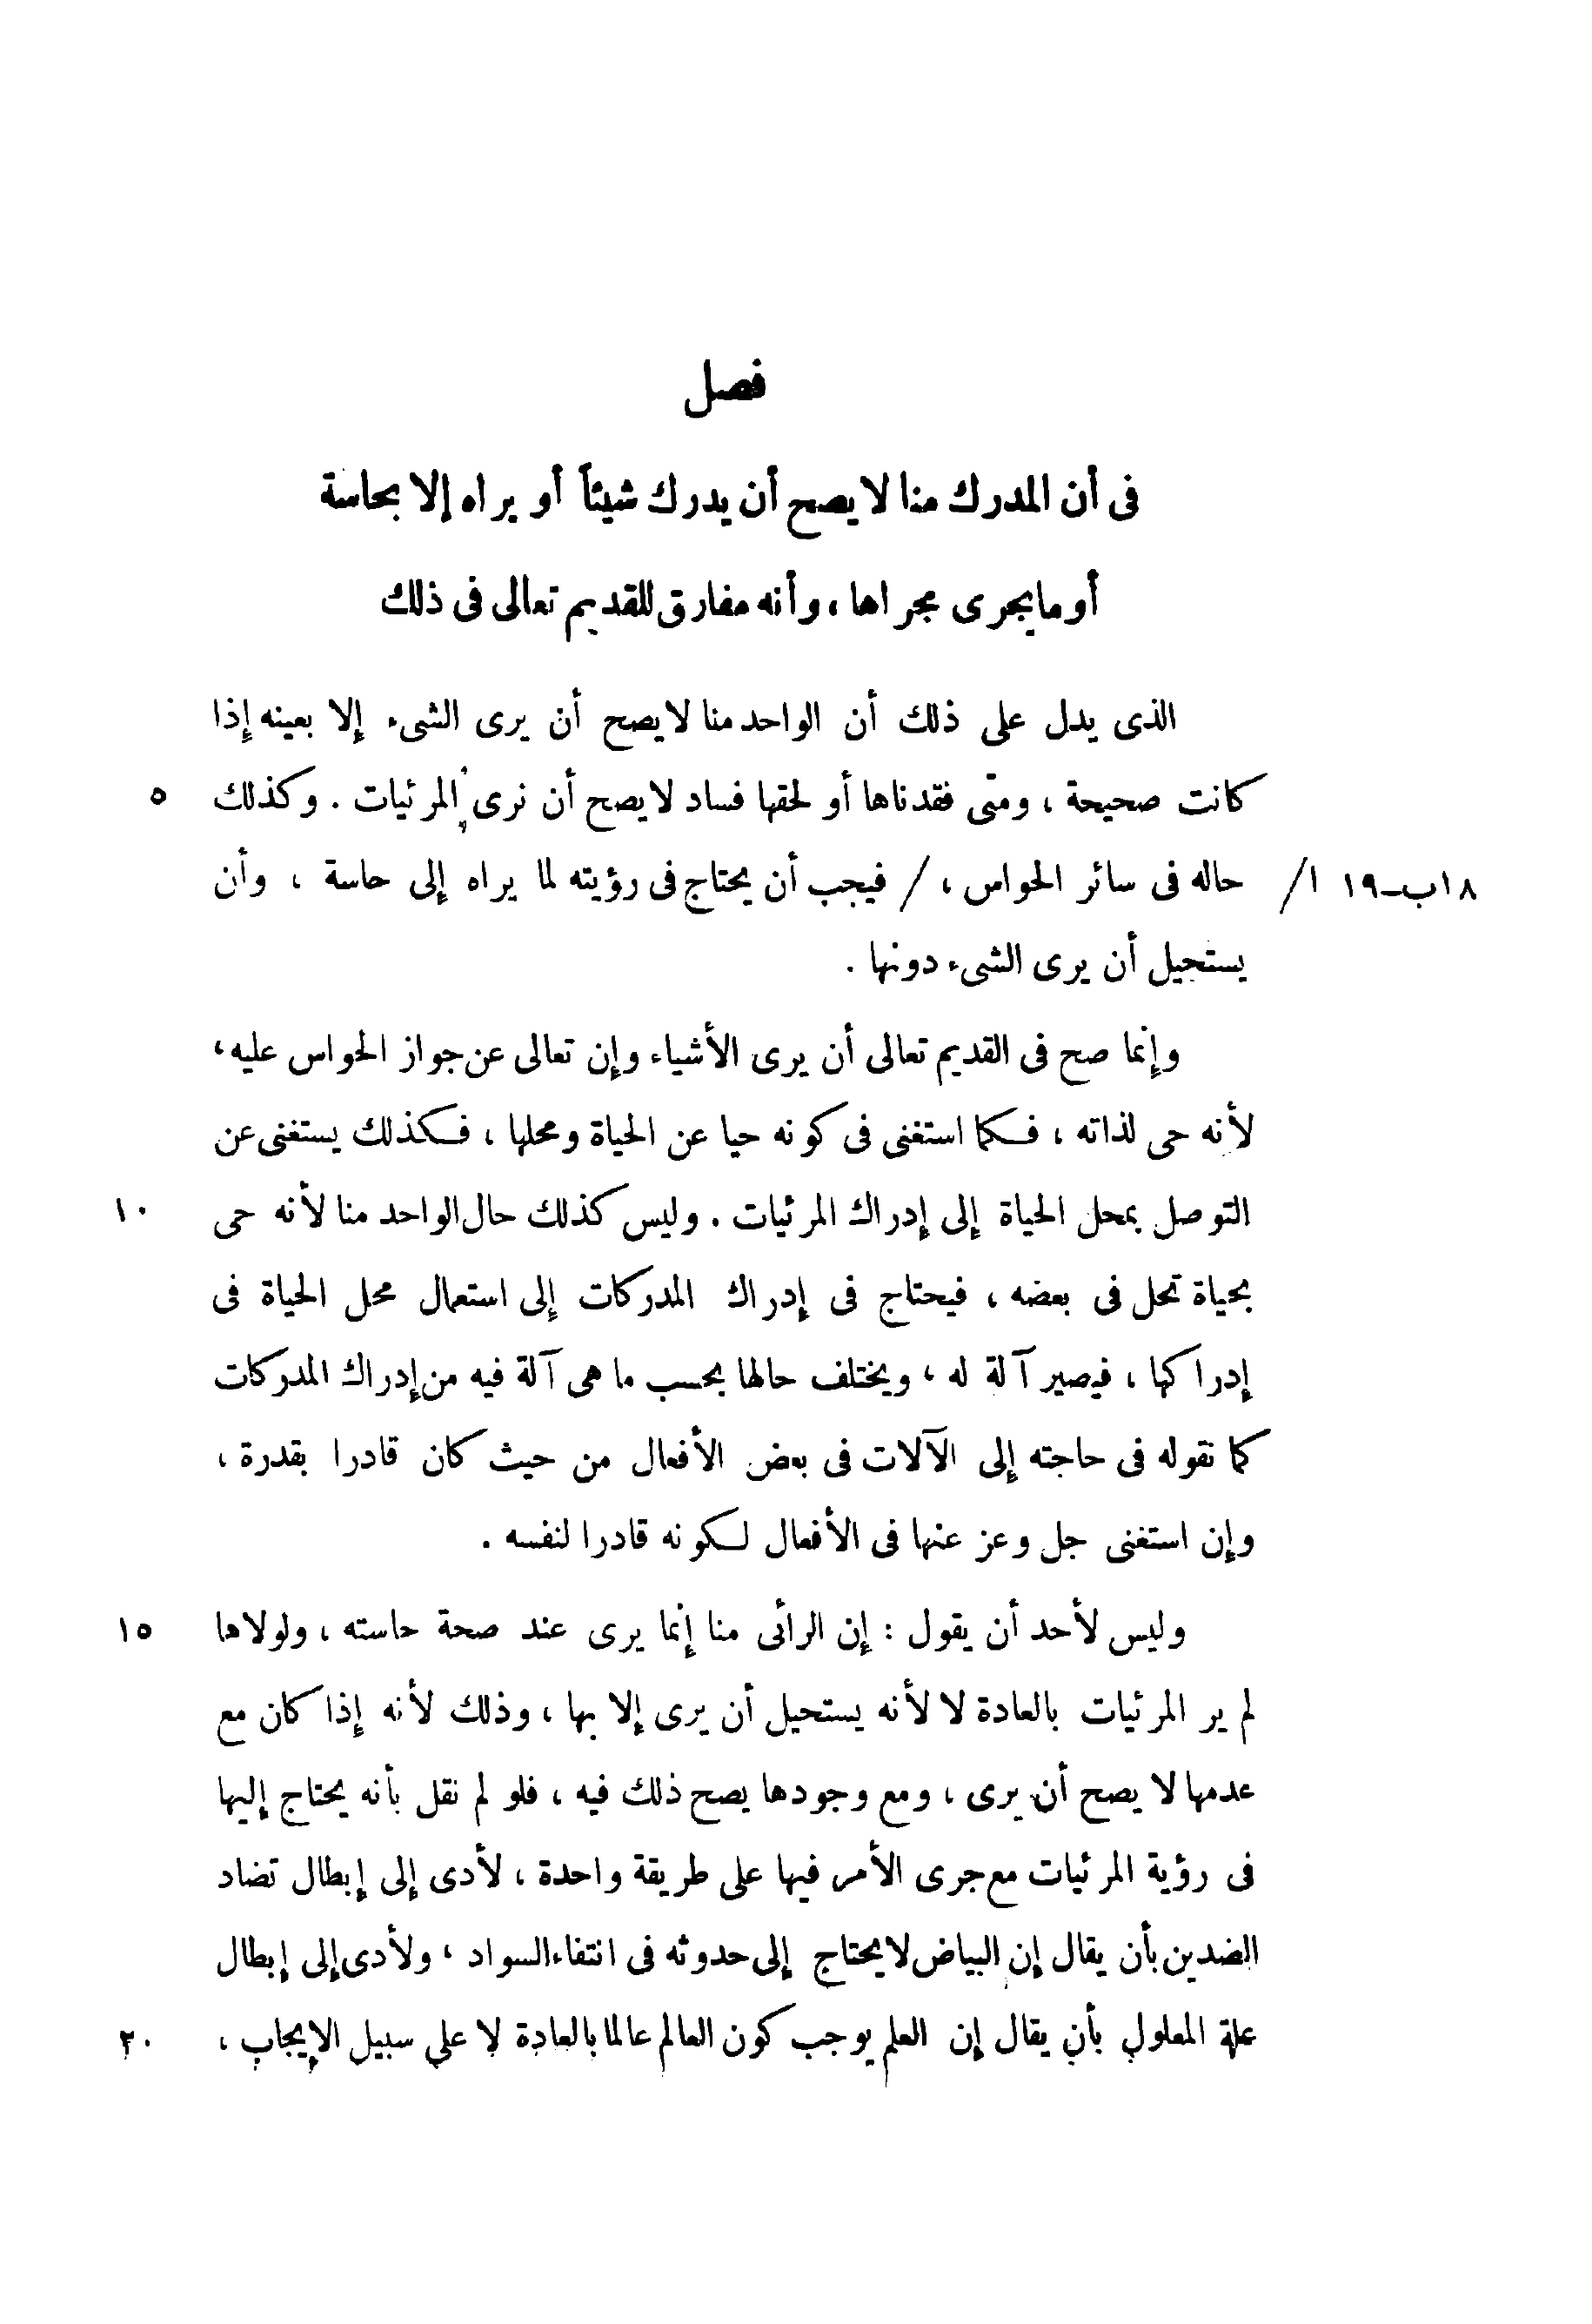 فصل
فى أن المدرك منا لا يصح أن يدرك شيئاً أو يراه إلا بحاسة
أو ما يجرى مجراها ، وأنه مفارق للقديم تعالى فى ذلك
الذى يدل على ذلك أن الواحد منا لا يصح أن يرى الشىء إلا بعينه إذا
كانت صحيحة ، ومتى فقدناها أو لحقها فساد لا يصح أن نرى المرئيات . وكذلك ٥
١٨ب–١٩ ا/ حاله فى سائر الحواس ، / فيجب أن يحتاج فى رؤيته لما يراه إلى حاسة ، وأن
يستحيل أن يرى الشىء دونها .
وإنما صح فى القديم تعالى أن يرى الأشياء وإن تعالى عن جواز الحواس عليه ،
لأنه حى لذاته ، فكما استغنى فى كونه حيا عن الحياة ومحلها ، فكذلك يستغنى عن
التوصل بمحل الحياة إلى إدراك المرئيات . وليس كذلك حال الواحد منا لأنه حى ١٠
بحياة تحل فى بعضه ، فيحتاج فى إدراك المدركات إلى استعمال محل الحياة فى
إدراكها ، فيصير آلة له ، ويختلف حالها بحسب ما هى آلة فيه من إدراك المدركات
كما نقوله فى حاجته إلى الآلات فى بعض الأفعال من حيث كان قادرا بقدرة ،
وإن استغنى جل وعز عنها فى الأفعال لكونه قادرا لنفسه .
وليس لأحد أن يقول : إن الرائى منا إنما يرى عند صحة حاسته ، ولولاها ١٥
لم ير المرئيات بالعادة لا لأنه يستحيل أن يرى إلا بها ، وذلك لأنه إذا كان مع
عدمها لا يصح أن يرى ، ومع وجودها يصح ذلك فيه ، فلو لم نقل بأنه يحتاج إليها
فى رؤية المرئيات مع جرى الأمر فيها على طريقة واحدة ، لأدى إلى إبطال تضاد
الضدين بأن يقال إن البياض لا يحتاج إلى حدوثه فى انتفاء السواد ، ولأدى إلى إبطال
علة المعلول بأن يقال إن العلم يوجب كون العالم عالما بالعادة لا على سبيل الإيجاب ، ٢٠